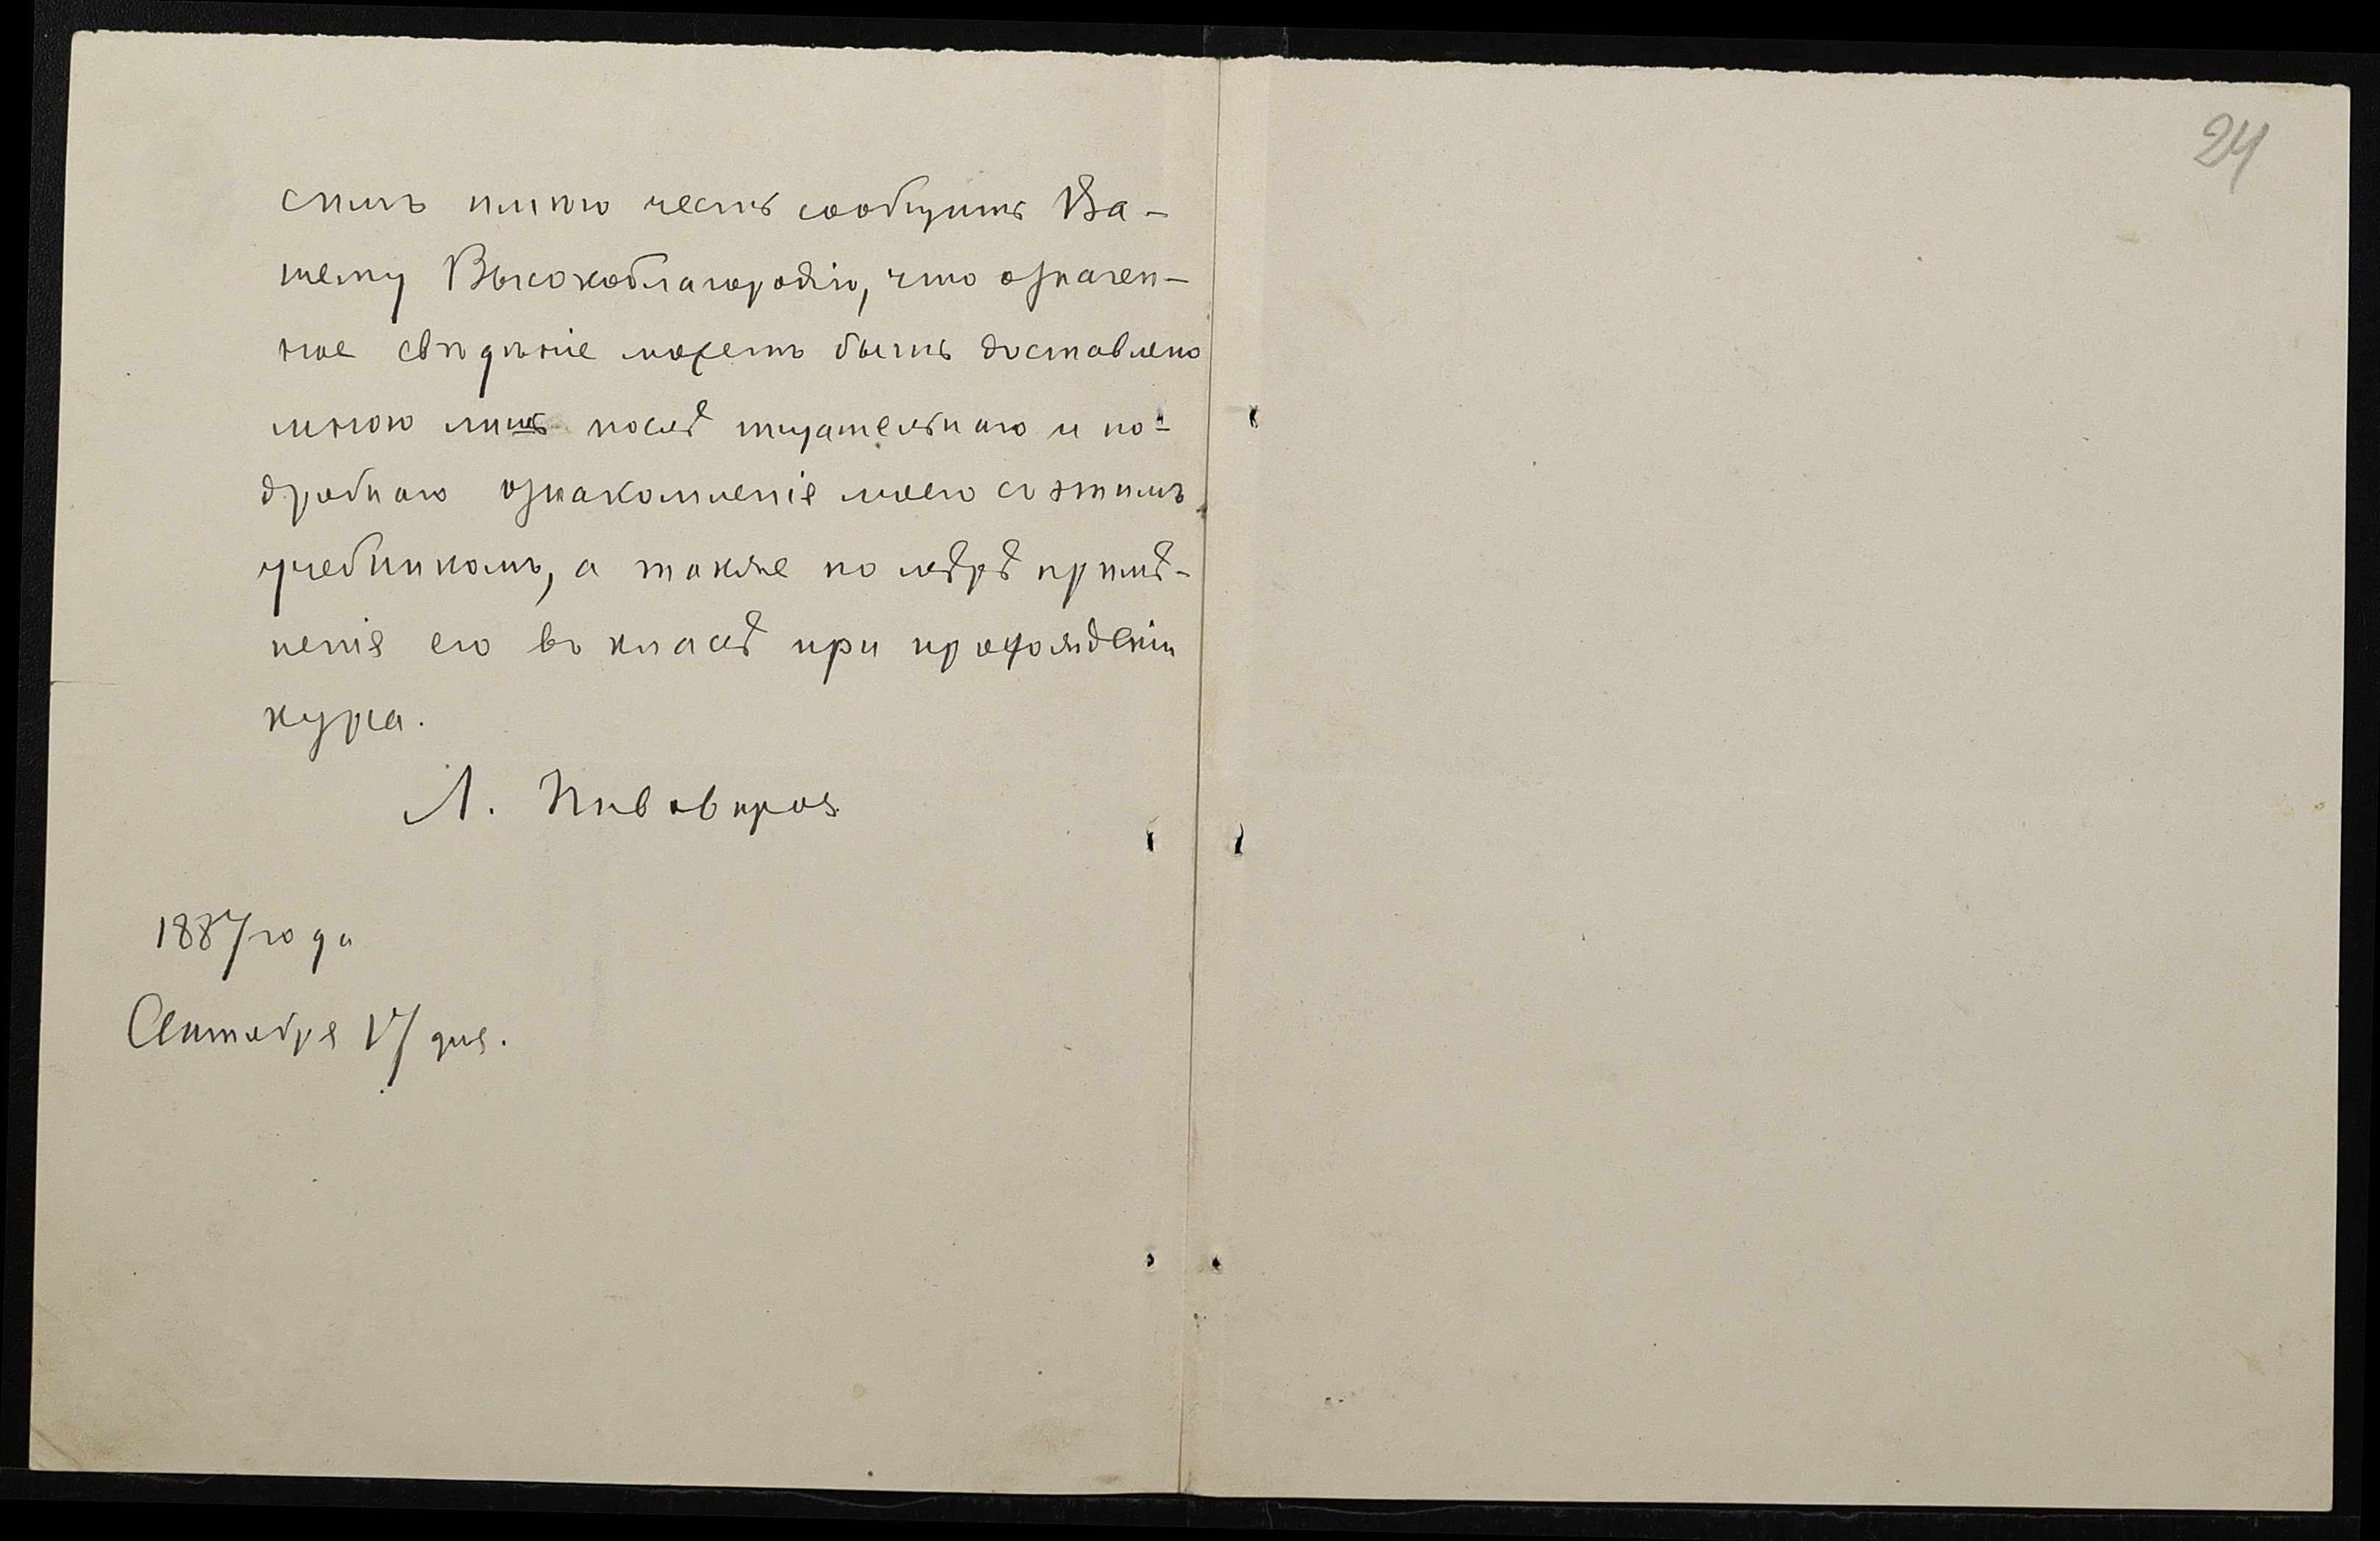 симъ имѣю честь сообщить Ва-
шему Высокоблагородію, что означен-
ное свѣдѣніе можетъ быть доставлено
мною лишь послѣ тщательнаго и по-
дробнаго ознакомленія моего съ этимъ
учебникомъ, а также по мѣрѣ примѣ-
ненія его въ классѣ при прохожденіи
курса.
Л.
1887 года
Сентября 17 дня.
24